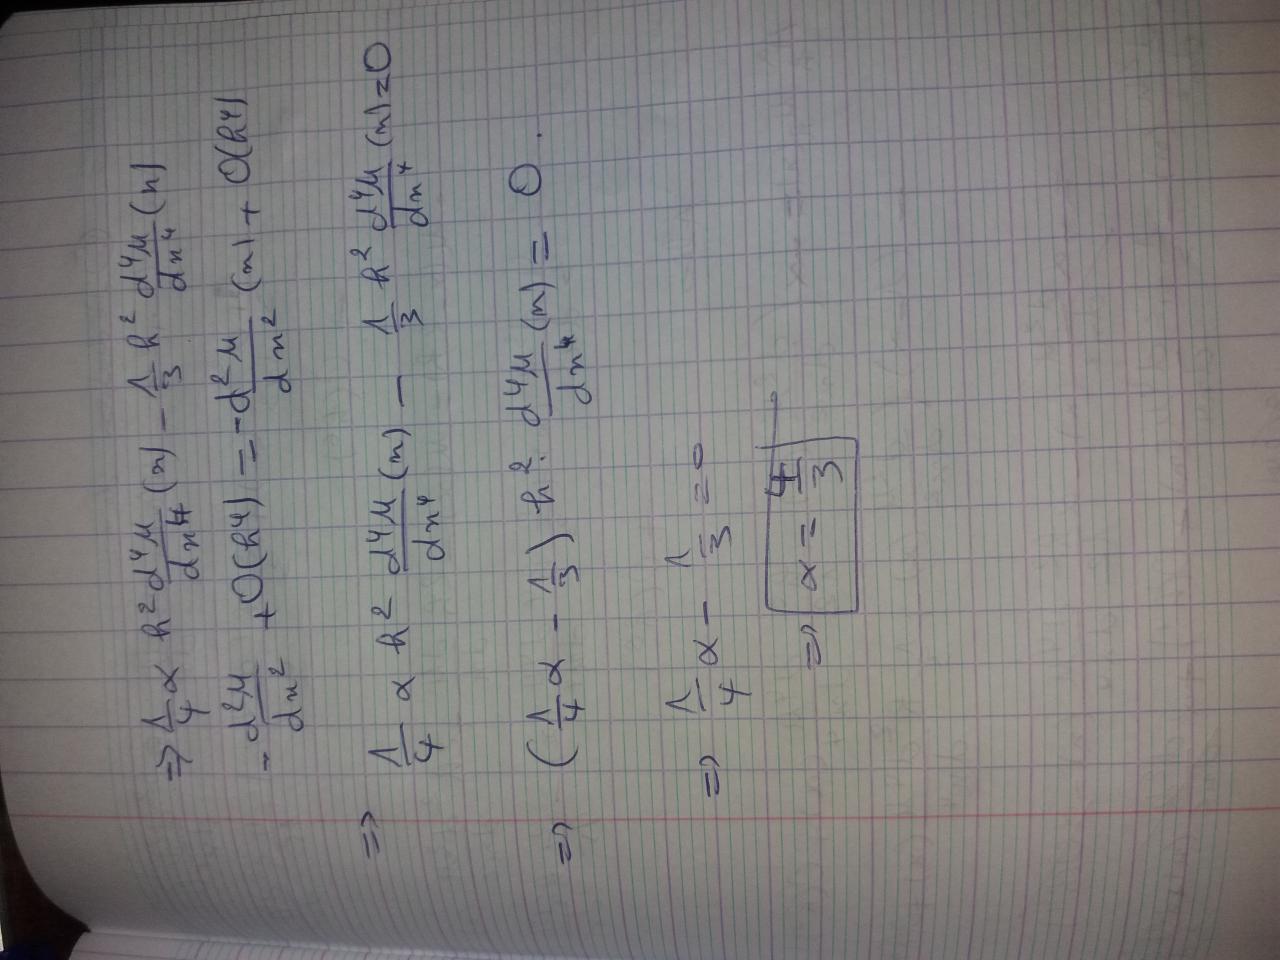 ⇒ 1/4 α h² d⁴μ/dx⁴ (x) - 1/3 h² d⁴μ/dx⁴ (x)
- d²μ/dx² + O(h⁴) = - d²μ/dx² (x) + O(h⁴)
⇒ 1/4 α h² d⁴μ/dx⁴ (x) - 1/3 h² d⁴μ/dx⁴ (x) = 0
⇒ (1/4 α - 1/3) h². d⁴μ/dx⁴ (x) = 0.
⇒ 1/4 α - 1/3 = 0
⇒ α = 4/3